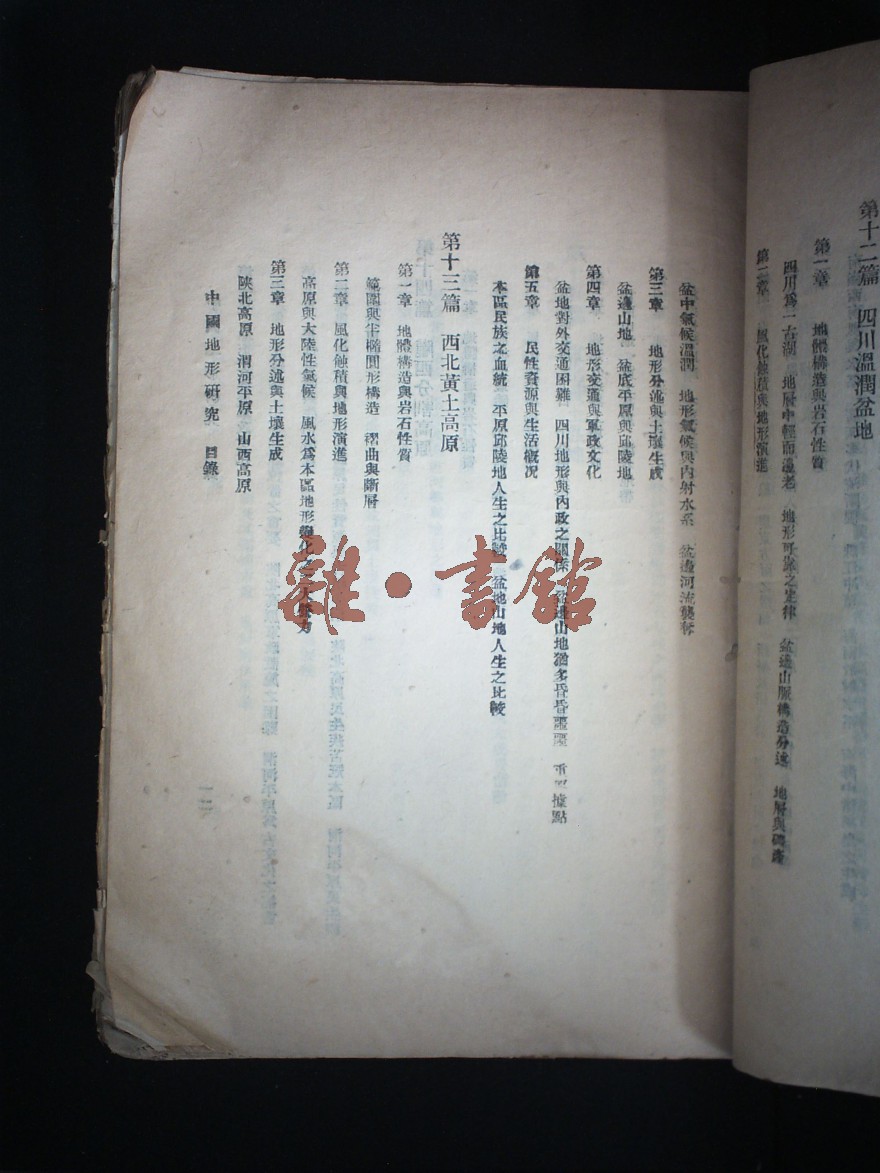 第十二篇 四川溫潤盆地
第一章 地體構造與岩石性質
四川爲一古湖 地層中輕而邊老 地形可靠之定律 盆邊山脈構造分述 地層與礦產
第二章 風化蝕積與地形演進
盆中氣候溫潤 地形氣候與內射水系 盆邊河流襲奪
第三章 地形分述與土壤生成
盆邊山地 盆底平原與邱陵地
第四章 地形交通與軍政文化
盆地對外交通困難 四川地形與內政之關係 盆邊山地猶多昏昏噩噩 重 據點
第五章 民性資源與生活概况
本區民族之血統 平原邱陵地人生之比較 盆地山地人生之比較
第十三篇 西北黃土高原
第一章 地體構造與岩石性質
範圍與半橢圓形構造 褶曲與斷層
第二章 風化蝕積與地形演進
高原與大陸性氣候 風水爲本區地形變化之二大營力
第三章 地形分述與土壤生成
陝北高原 渭河平原 山西高原
中國地形研究 目錄
一二
雜·書館